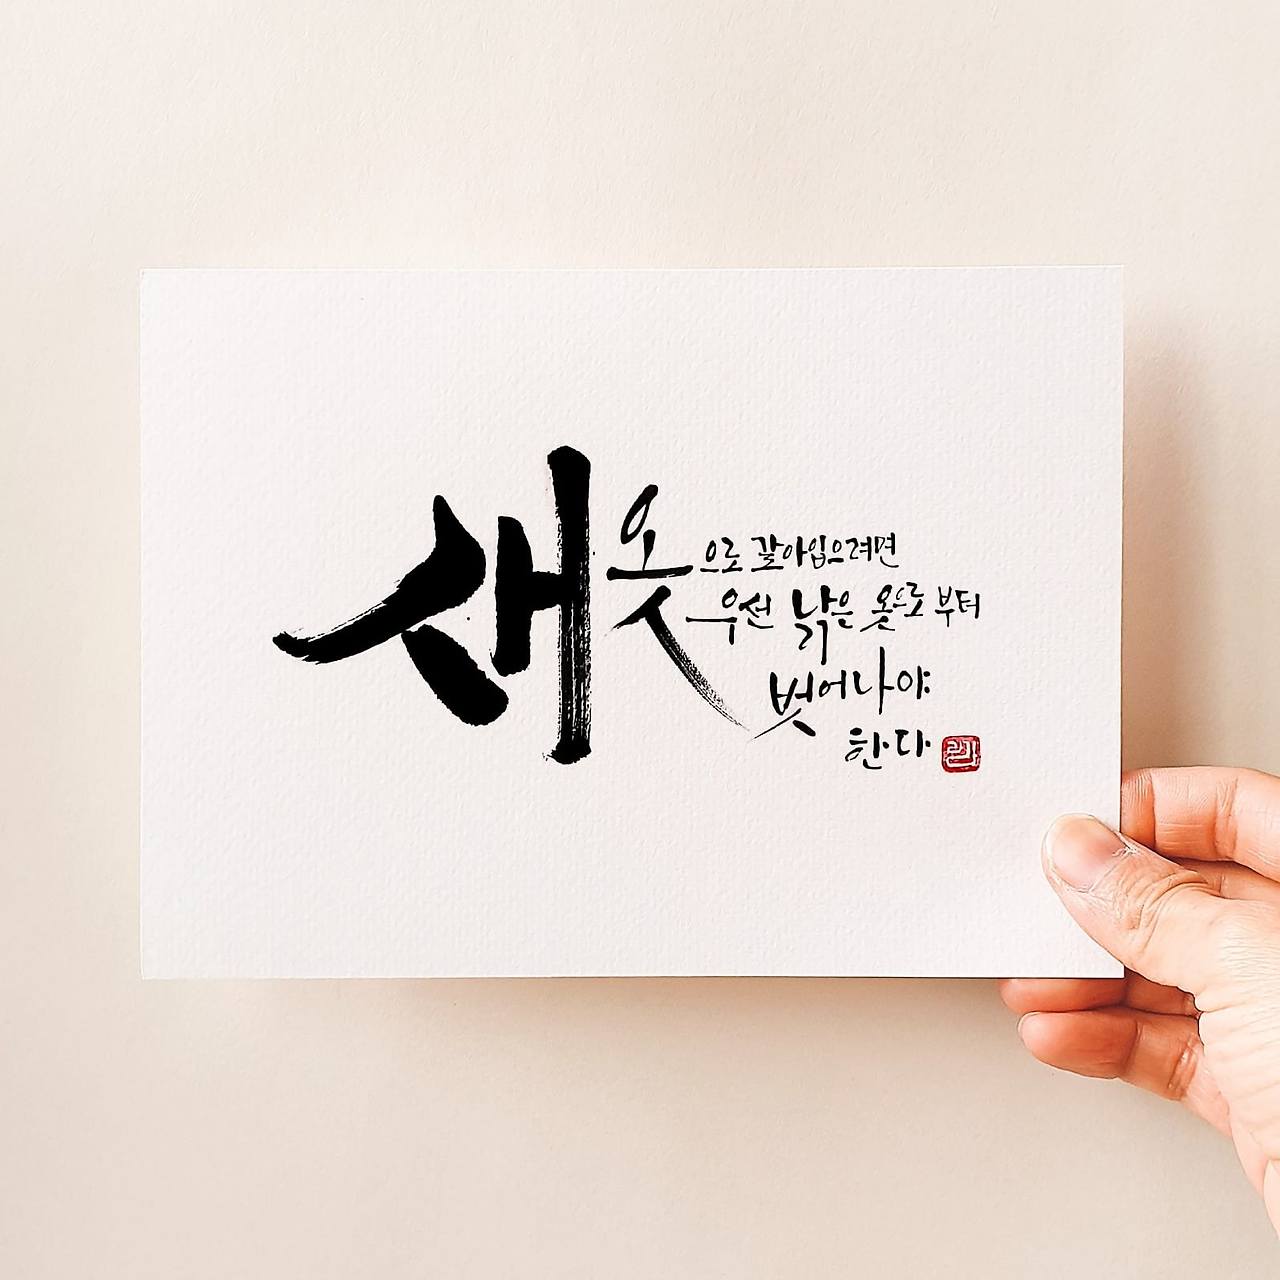 새옷으로 갈아입으려면
우선 낡은 옷으로 부터
벗어나야
한다